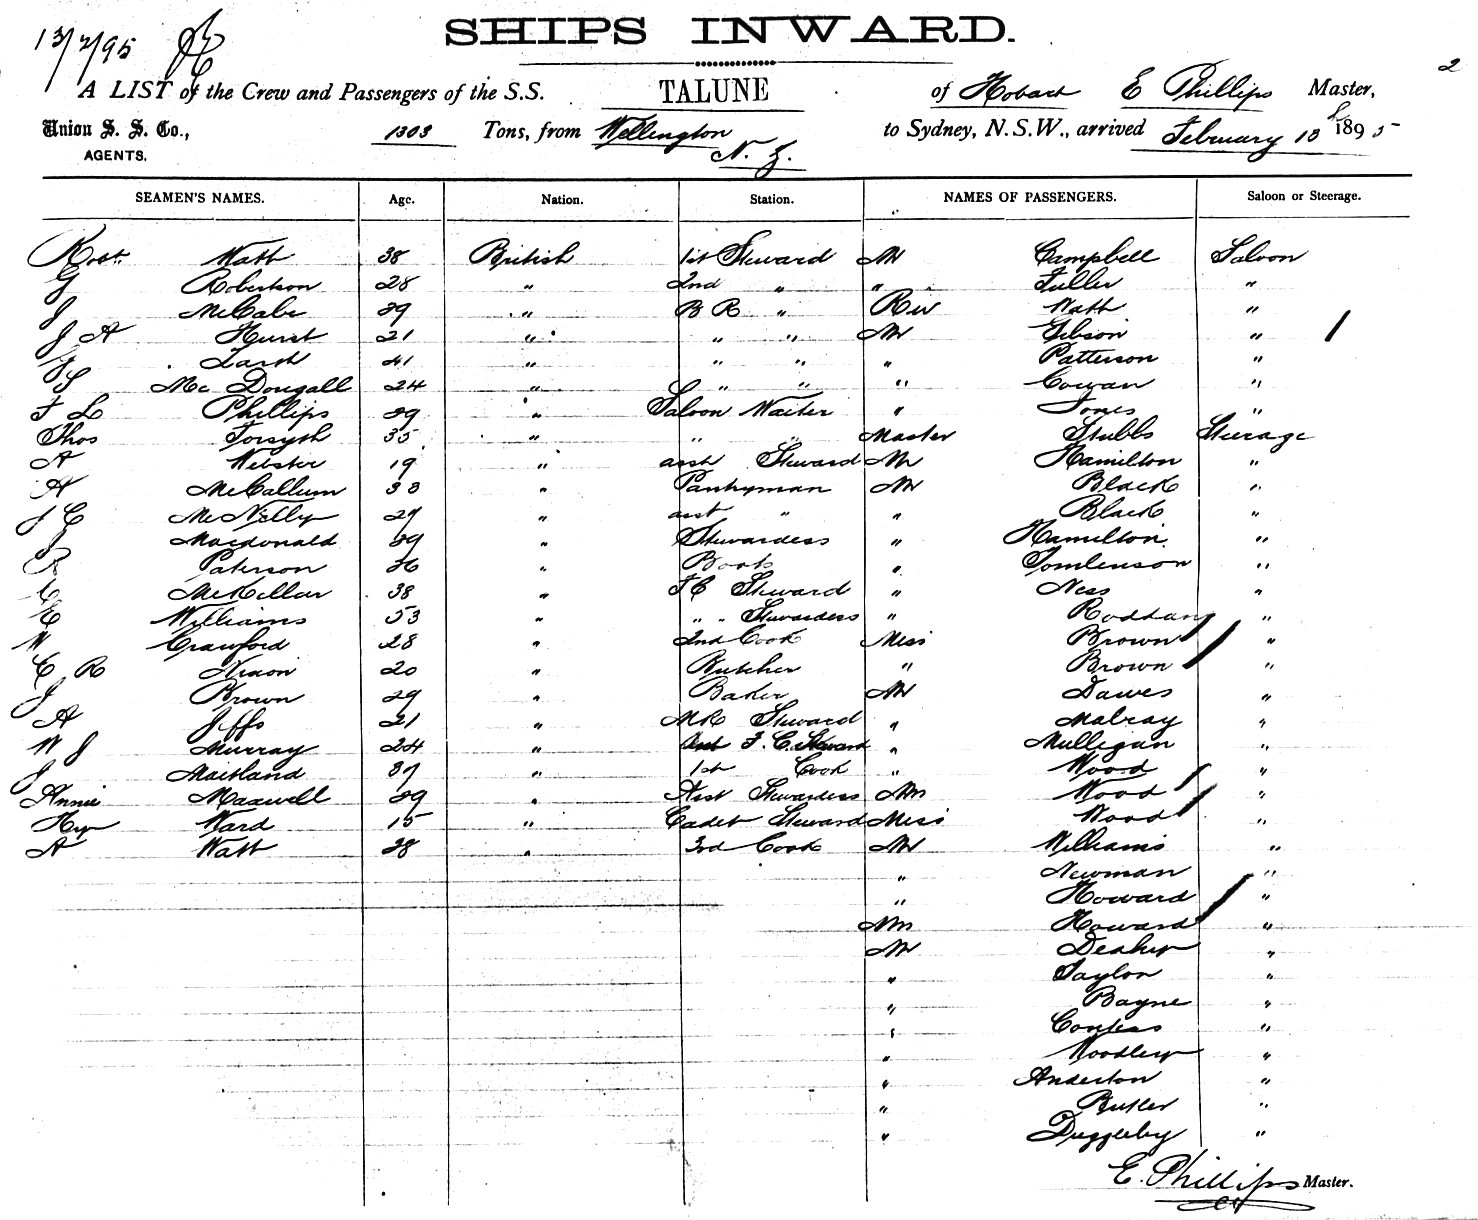 13/2/95
SHIPS INWARD.
2
A LIST of the Crew and Passengers of the S.S. TALUNE of Hobart E Phillips Master,
Union S. S. Co., 1303 Tons, from Wellington N. Z. to Sydney, N.S.W., arrived February 13th 1895
AGENTS.
SEAMEN'S NAMES. Age. Nation. Station. NAMES OF PASSENGERS. Saloon or Steerage.
Robt. Watt 38 British 1st Steward Mr Campbell Saloon
G Robertson 28 " 2nd " " Fuller "
J McCabe 29 " B R " Rev Watt "
J A Hurst 21 " " " Mr Gibson "
41 " " " " Patterson "
Mc Dougall 24 " " " " Cowan "
F L Phillips 29 " Saloon Waiter " Jones "
Thos Forsyth 35 " " " Master Stubbs Steerage
A Webster 19 " asst Steward Mr Hamilton "
A McCallum 33 " Pantryman Mr Black "
J C McNelly 27 " asst " " Black "
J Macdonald 29 " Stewardess " Hamilton "
R Paterson 26 " Boots " Tomlenson "
C McKellar 38 " F C Steward " Ness "
E Williams 53 " " " Stewardess " Roddang "
W Crawford 28 " 2nd Cook Miss Brown "
C R Nixon 20 " Butcher " Brown "
J Brown 29 " Baker Mr Dawes "
A Jeffs 21 " Steward " Malray "
W J Murray 24 " Asst F. C. Steward " Mulligan "
J Maitland 37 " 1st Cook " Wood "
Annie Maxwell 29 " Asst Stewardess Mrs Wood "
Hy Ward 15 " Cadet Steward Miss Wood "
A Watt 28 " 3rd Cook Mr Williams "
" Newman "
" Howard "
Mrs Howard "
Mr "
" Taylor "
" Bayne "
" "
" Woodley "
" Anderton "
" Butler "
" Duggleby "
E. Phillips Master.